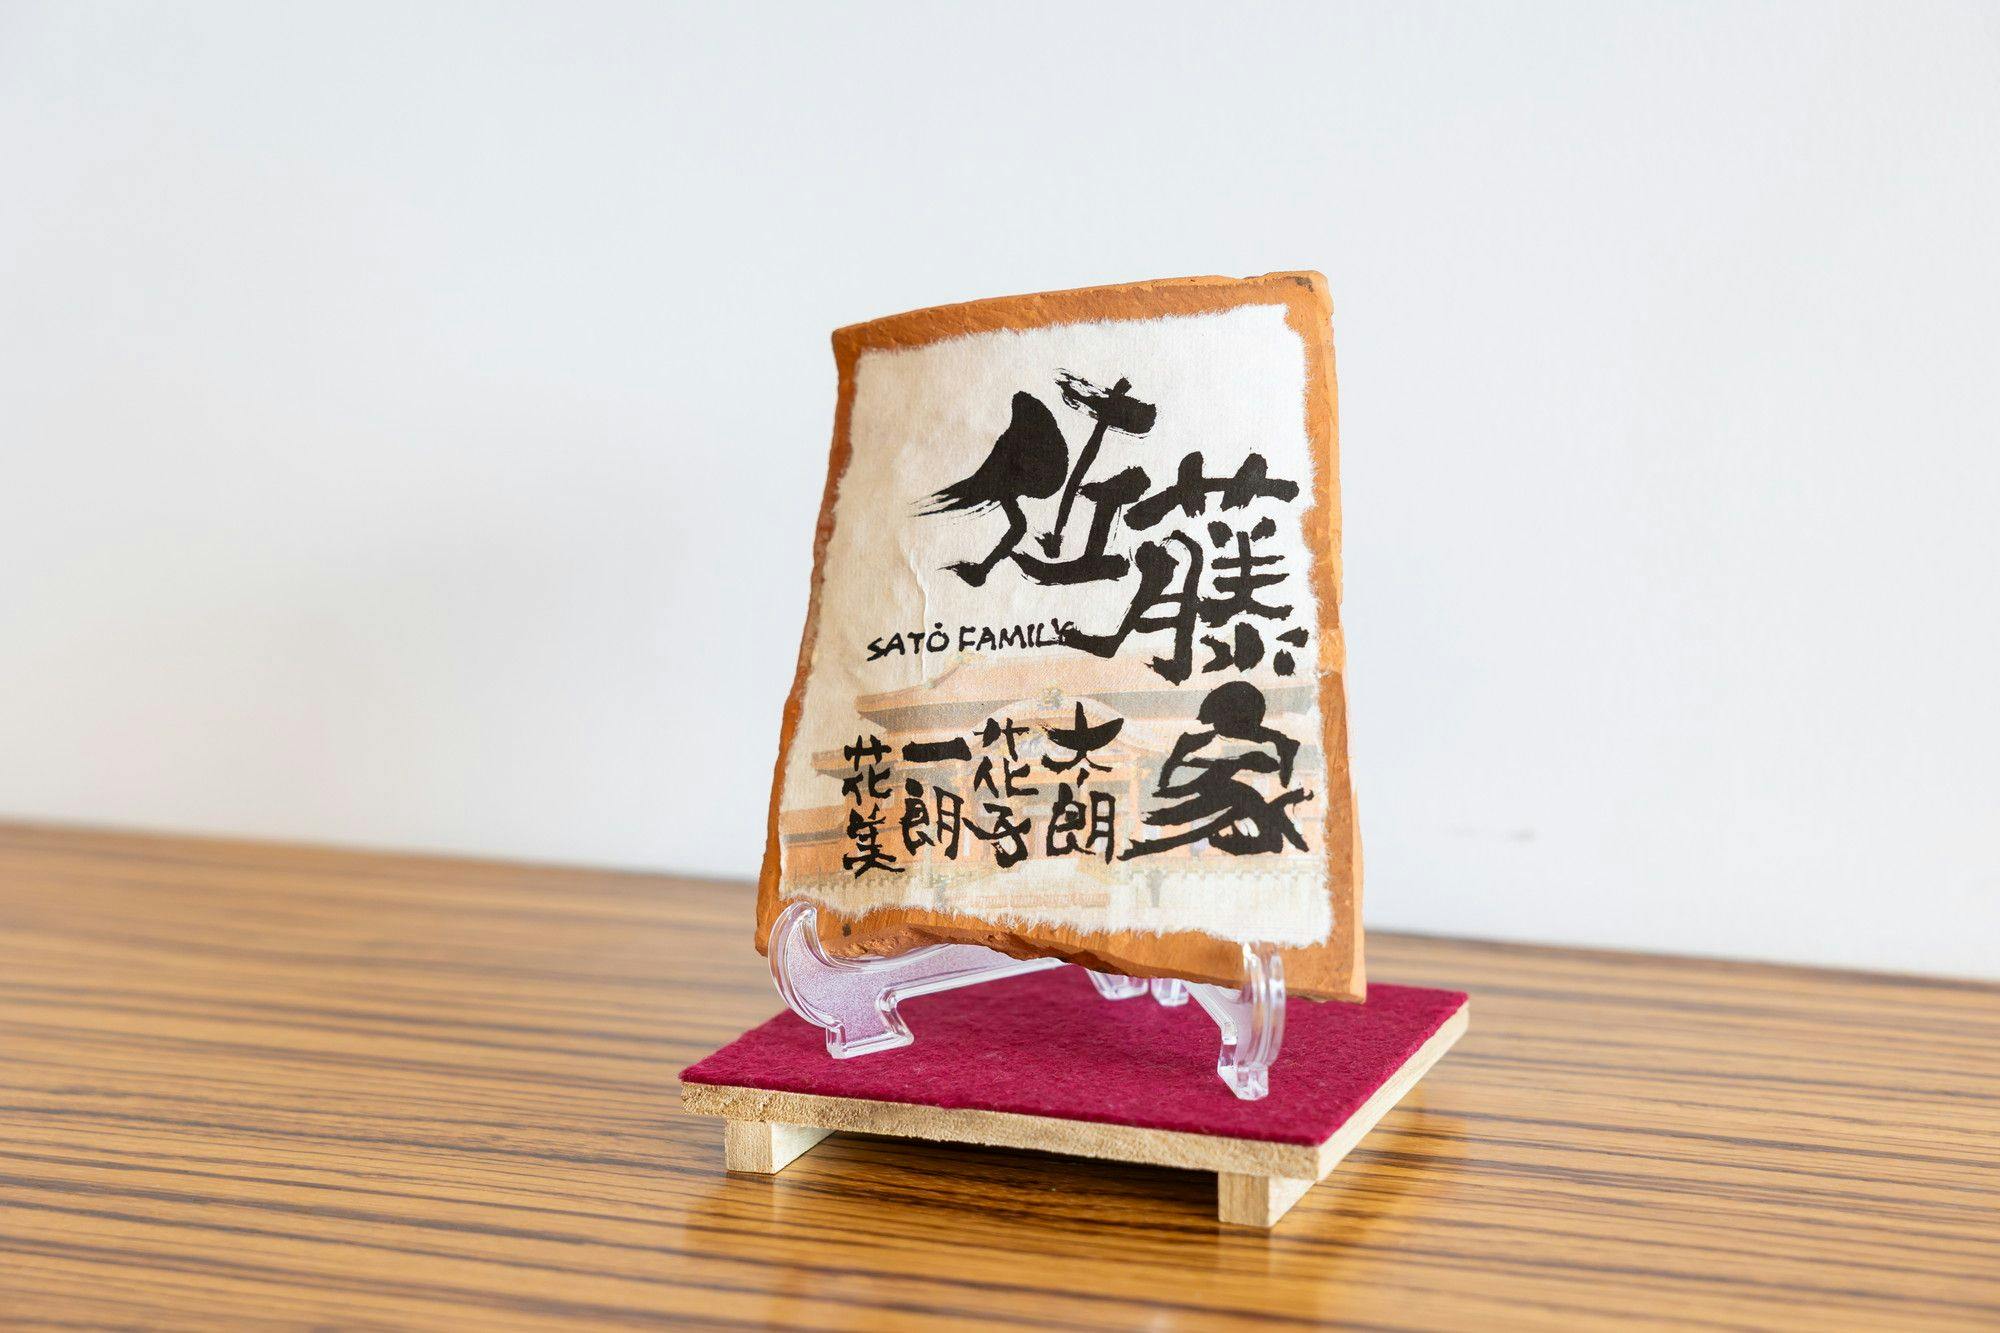 佐藤家
SATŌ FAMILY
太朗
花子
一朗
花美